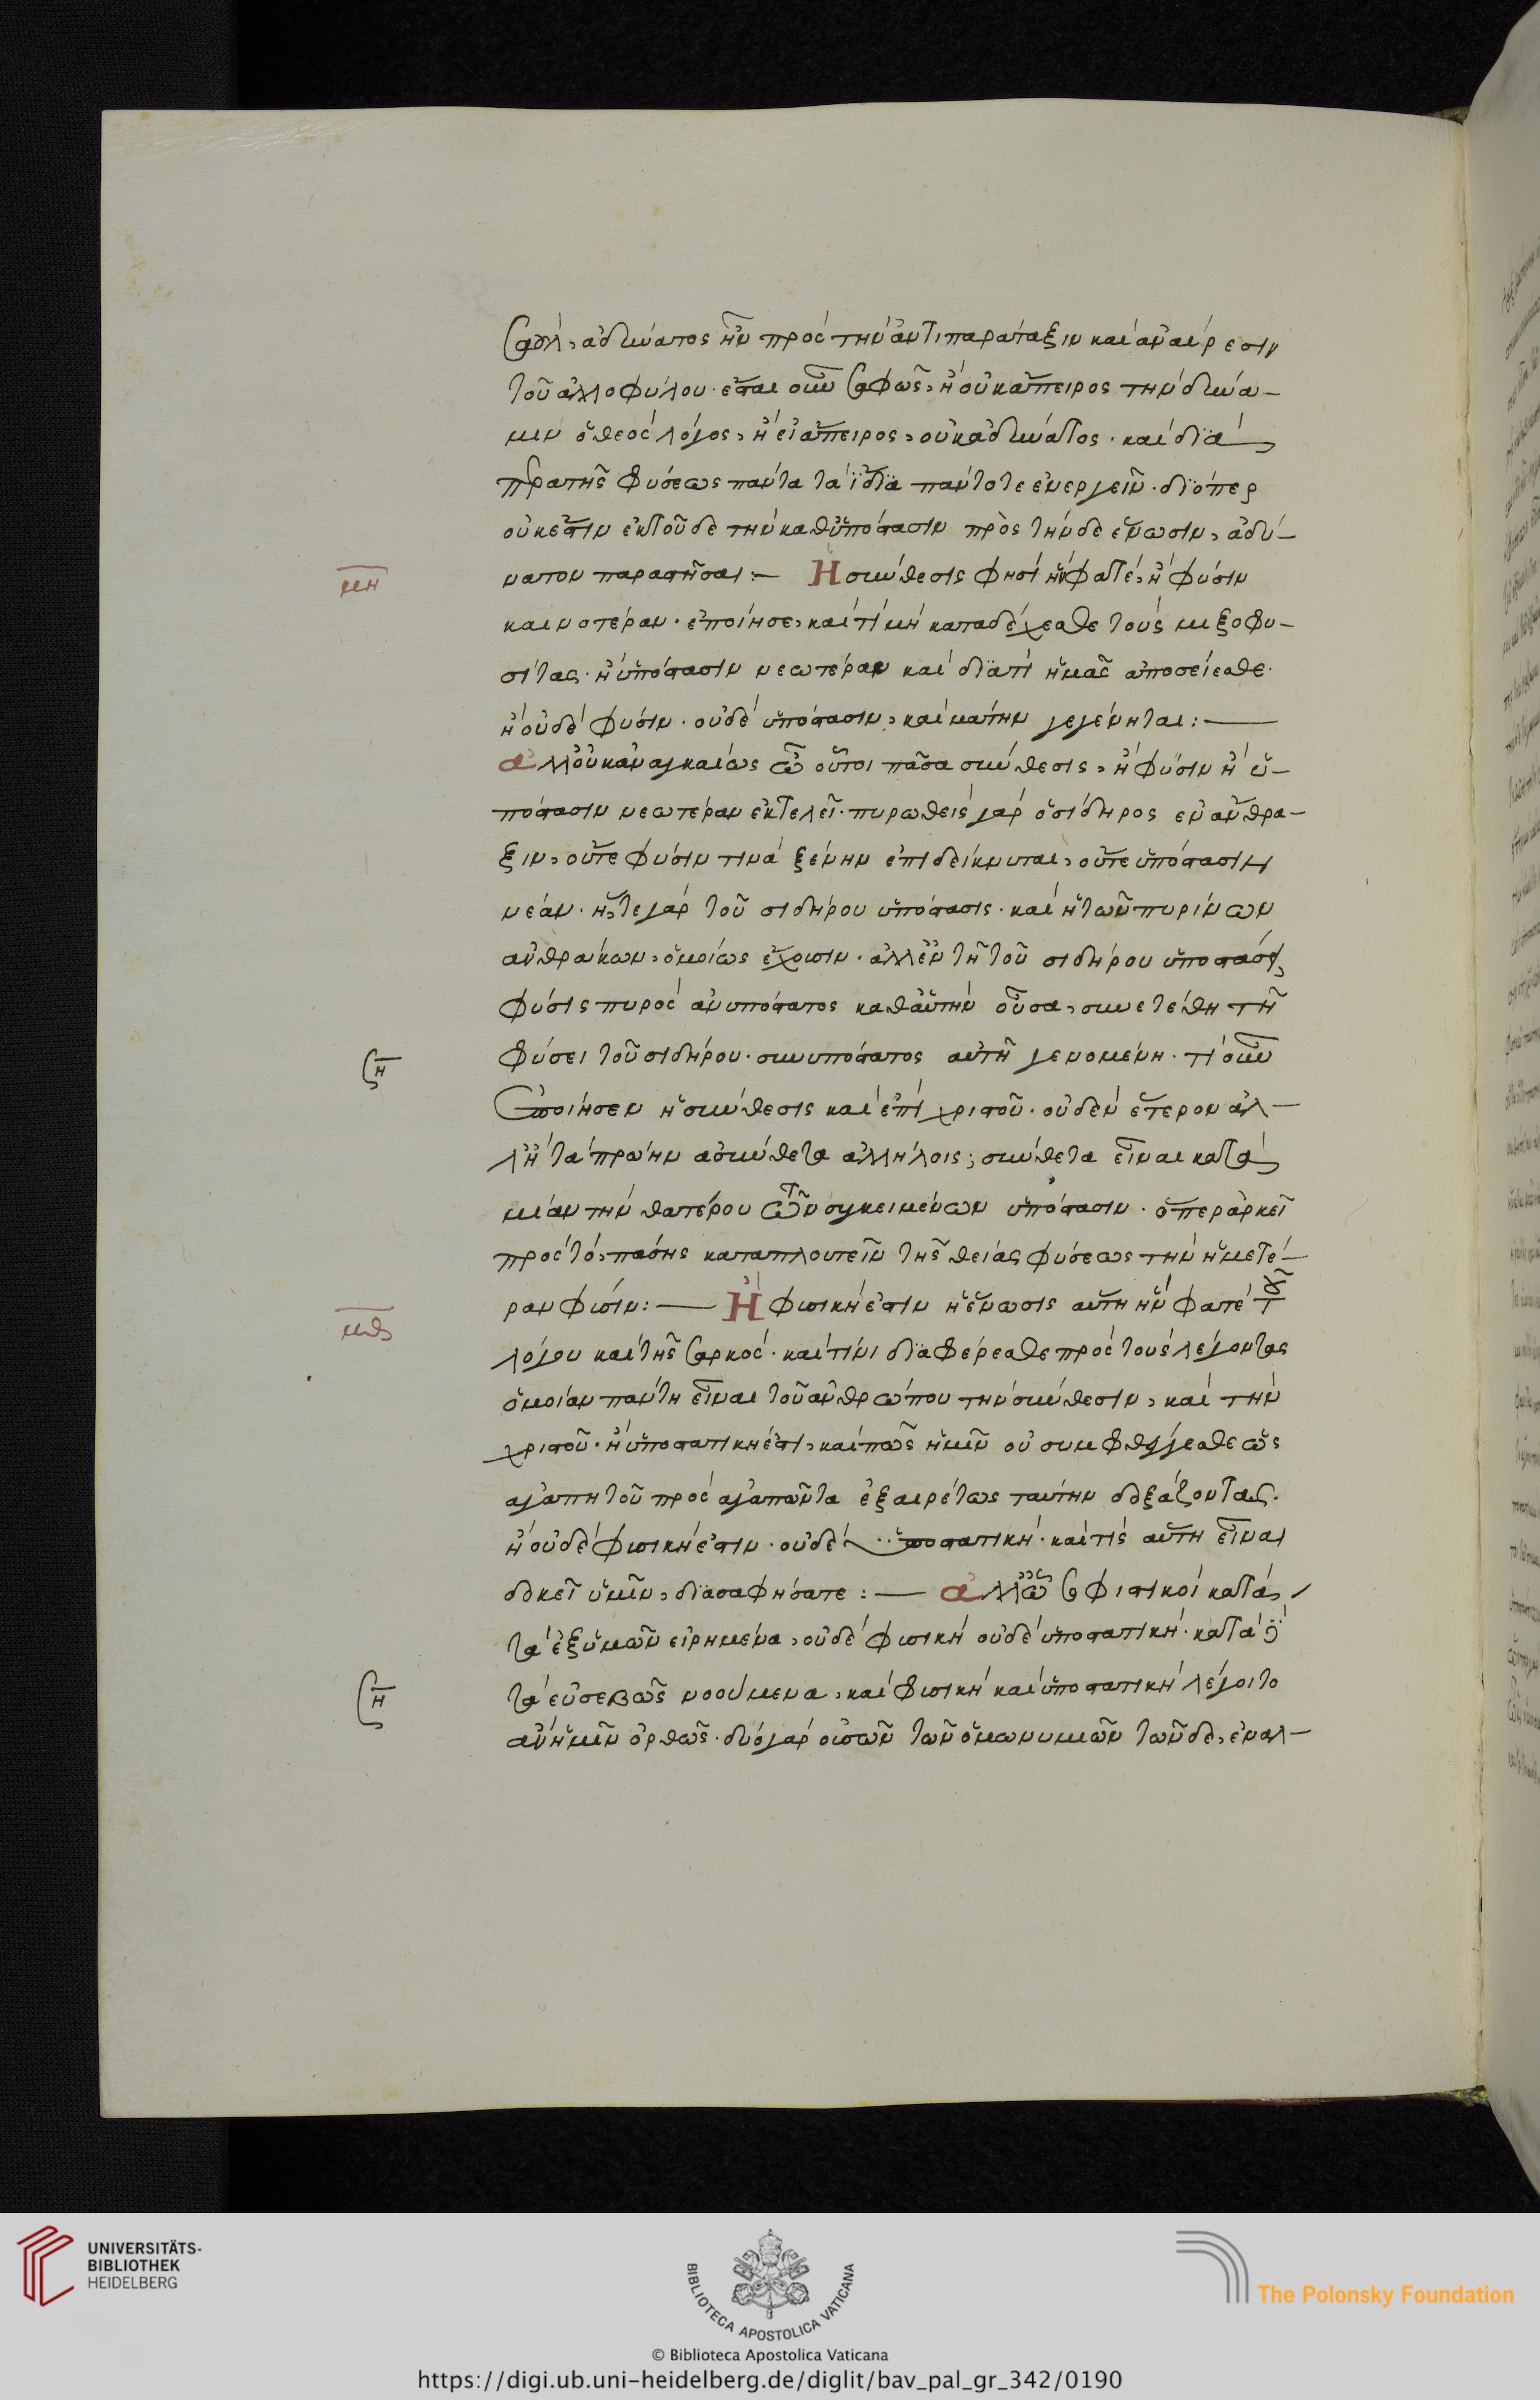 Σαοὺλ, ἀδύνατος ἦν πρὸς τὴν ἀντιπαράταξιν καὶ ἀναίρεσιν
τοῦ ἀλλοφύλου· ἔσται οὖν σαφῶς, ἢ οὐκ ἄπειρος τὴν δύνα-
μιν ὁ θεὸς λόγος, ἢ εἰ ἄπειρος, οὐκ ἀδύνατος· καὶ διὰ
τῆς φύσεως πάντα τὰ ἴδια πάντοτε ἐνεργεῖν· διόπερ
οὐκ ἔστιν ἐκ τοῦδε τὴν καθ' ὑπόστασιν πρὸς τήνδε ἕνωσιν, ἀδύ-
νατον παραστῆσαι:—
μη
Ἡ σύνθεσις φησὶ ἥν φατέ, ἢ φύσιν
καινοτέραν ἐποίησε, καὶ τί μὴ καταδέχεσθε τοὺς μιξοφυ-
σίτας· ἢ ὑπόστασιν νεωτέραν καὶ διατί ἡμᾶς ἀποσείεσθε·
ἢ οὐδὲ φύσιν· οὐδὲ ὑπόστασιν, καὶ μάτην γεγένηται:—
ἀλλ' οὐκ ἀναγκαίως ὦ οὗτοι πᾶσα σύνθεσις, ἢ φύσιν ἢ ὑ-
πόστασιν νεωτέραν ἐκτελεῖ· πυρωθεὶς γὰρ ὁ σίδηρος ἐν ἄνθρα-
ξιν, οὔτε φύσιν τινὰ ξένην ἐπιδείκνυται, οὔτε ὑπόστασιν
νέαν· ἥ, τε γὰρ τοῦ σιδήρου ὑπόστασις· καὶ ἡ τῶν πυρίνων
ἀνθράκων, ὁμοίως ἔχουσιν· ἀλλ' ἐν τῇ τοῦ σιδήρου ὑποστάσει,
φύσις πυρὸς ἀνυπόστατος καθ' αὑτὴν οὖσα, συνετέθη τῇ
φύσει τοῦ σιδήρου· συνυπόστατος αὐτῇ γενομένη· τί οὖν
ἐποίησεν ἡ σύνθεσις καὶ ἐπὶ χριστοῦ· οὐδὲν ἕτερον ἀλ-
λ' ἢ τὰ πρώην ἀσύνθετα ἀλλήλοις, σύνθετα εἶναι κατὰ
μίαν τὴν θατέρου τῶν συγκειμένων ὑπόστασιν· ὅπερ ἀρκεῖ
πρὸς τό, πάσης καταπλουτεῖν τῆς θείας φύσεως τὴν ἡμετέ-
ραν φύσιν:—
μθ
Ἢ φυσική ἐστιν ἡ ἕνωσις αὕτη ἥν φατέ τοῦ
λόγου καὶ τῆς σαρκός· καὶ τίνι διαφέρεσθε πρὸς τοὺς λέγοντας
ὁμοίαν πάντη εἶναι τοῦ ἀνθρώπου τὴν σύνθεσιν, καὶ τὴν
χριστοῦ· ἢ ὑποστατική ἐστι, καὶ πῶς ἡμῖν οὐ συμφθέγγεσθε ὡς
ἀγαπητοῦ πρὸς ἀγαπῶντα ἐξαιρέτως ταύτην δοξάζοντας·
ἢ οὐδὲ φυσική ἐστιν· οὐδὲ ὑποστατική· καὶ τίς αὕτη εἶναι
δοκεῖ ὑμῖν, διασαφήσατε:— ἀλλ' ὦ σοφιστικοὶ κατὰ,
τὰ ἐξ ὑμῶν εἰρημένα, οὐδὲ φυσικὴ οὐδὲ ὑποστατική· κατὰ δὲ
τὰ εὐσεβῶς νοούμενα, καὶ φυσικὴ καὶ ὑποστατικὴ λέγοιτο
ἂν ἡμῖν ὀρθῶς· δύο γὰρ οὐσῶν τῶν ὁμωνυμιῶν τῶνδε, ἐναλ-
UNIVERSITÄTS-
BIBLIOTHEK
HEIDELBERG
BIBLIOTECA APOSTOLICA VATICANA
The Polonsky Foundation
© Biblioteca Apostolica Vaticana
https://digi.ub.uni-heidelberg.de/diglit/bav_pal_gr_342/0190